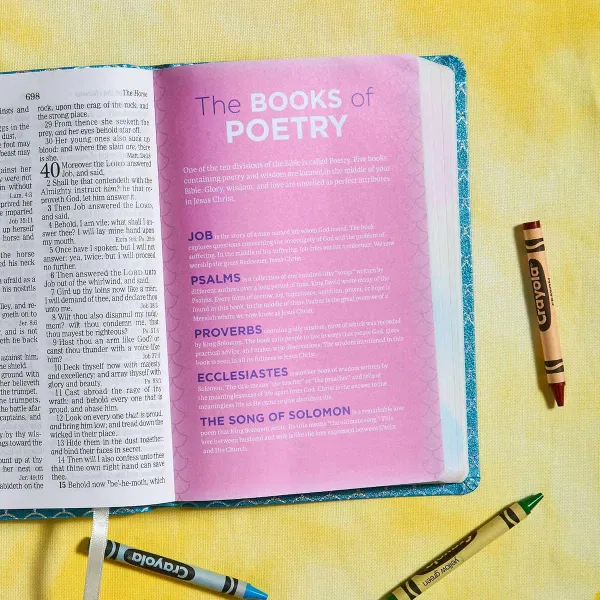 698
The Horse
ings and
ngs in the
dust,
foot may
beast may
against her
y were not
in without
Lam. 4:3
prived her
e imparted
Job 35:11
up herself
horse and
the horse
ed his neck
afraid as a
goeth on to
Jer. 8:6
th he back
against him,
he shield.
ground with
her believeth
the trumpet.
he trumpets,
the battle afar
captains, and
by thy wis-
ings toward the
ount up at thy
her nest on
abideth on the
rock, upon the crag of the rock, and
the strong place.
29 From thence she seeketh the
prey, and her eyes behold afar off.
30 Her young ones also suck up
blood: and where the slain are, there
is she.
40 Moreover the LORD answered
Job, and said,
2 Shall he that contendeth with the
Almighty instruct him? he that re-
proveth God, let him answer it.
3 Then Job answered the LORD,
and said,
4 Behold, I am vile; what shall I an-
swer thee? I will lay mine hand upon
my mouth.
5 Once have I spoken; but I will not
answer: yea, twice; but I will proceed
no further.
6 Then answered the LORD unto
Job out of the whirlwind, and said,
7 Gird up thy loins now like a man:
I will demand of thee, and declare thou
unto me.
8 Wilt thou also disannul my judg-
ment? wilt thou condemn me, that
thou mayest be righteous?
9 Hast thou an arm like God? or
canst thou thunder with a voice like
him?
10 Deck thyself now with majesty
and excellency; and array thyself with
glory and beauty.
11 Cast abroad the rage of thy
wrath: and behold every one that is
proud, and abase him.
12 Look on every one that is proud,
and bring him low; and tread down the
wicked in their place.
13 Hide them in the dust together;
and bind their faces in secret.
14 Then will I also confess unto thee
that thine own right hand can save
thee.
15 Behold now be'-he-moth, which
The BOOKS of
POETRY
One of the ten divisions of the Bible is called Poetry. Five books
containing poetry and wisdom are located in the middle of your
Bible. Glory, wisdom, and love are unveiled as perfect attributes
in Jesus Christ.
JOB is the story of a man named Job whom God tested. The book
explores questions concerning the sovereignty of God and the problem of
suffering. In the middle of his suffering,
worship the great Redeemer, Jesus Christ.
PSALMS is a collection of one hundred fifty "songs" written by
different authors over a long period of time. King David wrote many of the
Psalms.
found in this book.
PROVERBS contains godly wisdom, most of which was recorded
by King Solomon.
practical advice, and makes wise observations. The wisdom mentioned in this
book is seen in all its fullness in Jesus Christ.
ECCLESIASTES is another book of wisdom written by
Solomon. The title means "the teacher" or "the preacher"
the meaninglessness of life apart from God. Christ is the answer to the
meaningless life as the one to give
THE SONG OF SOLOMON is a remarkable love
poem that King Solomon wrote.
love between husband and wife is like the love expressed between Christ
and the Church.
Crayola
Crayola
Crayola
yellow green